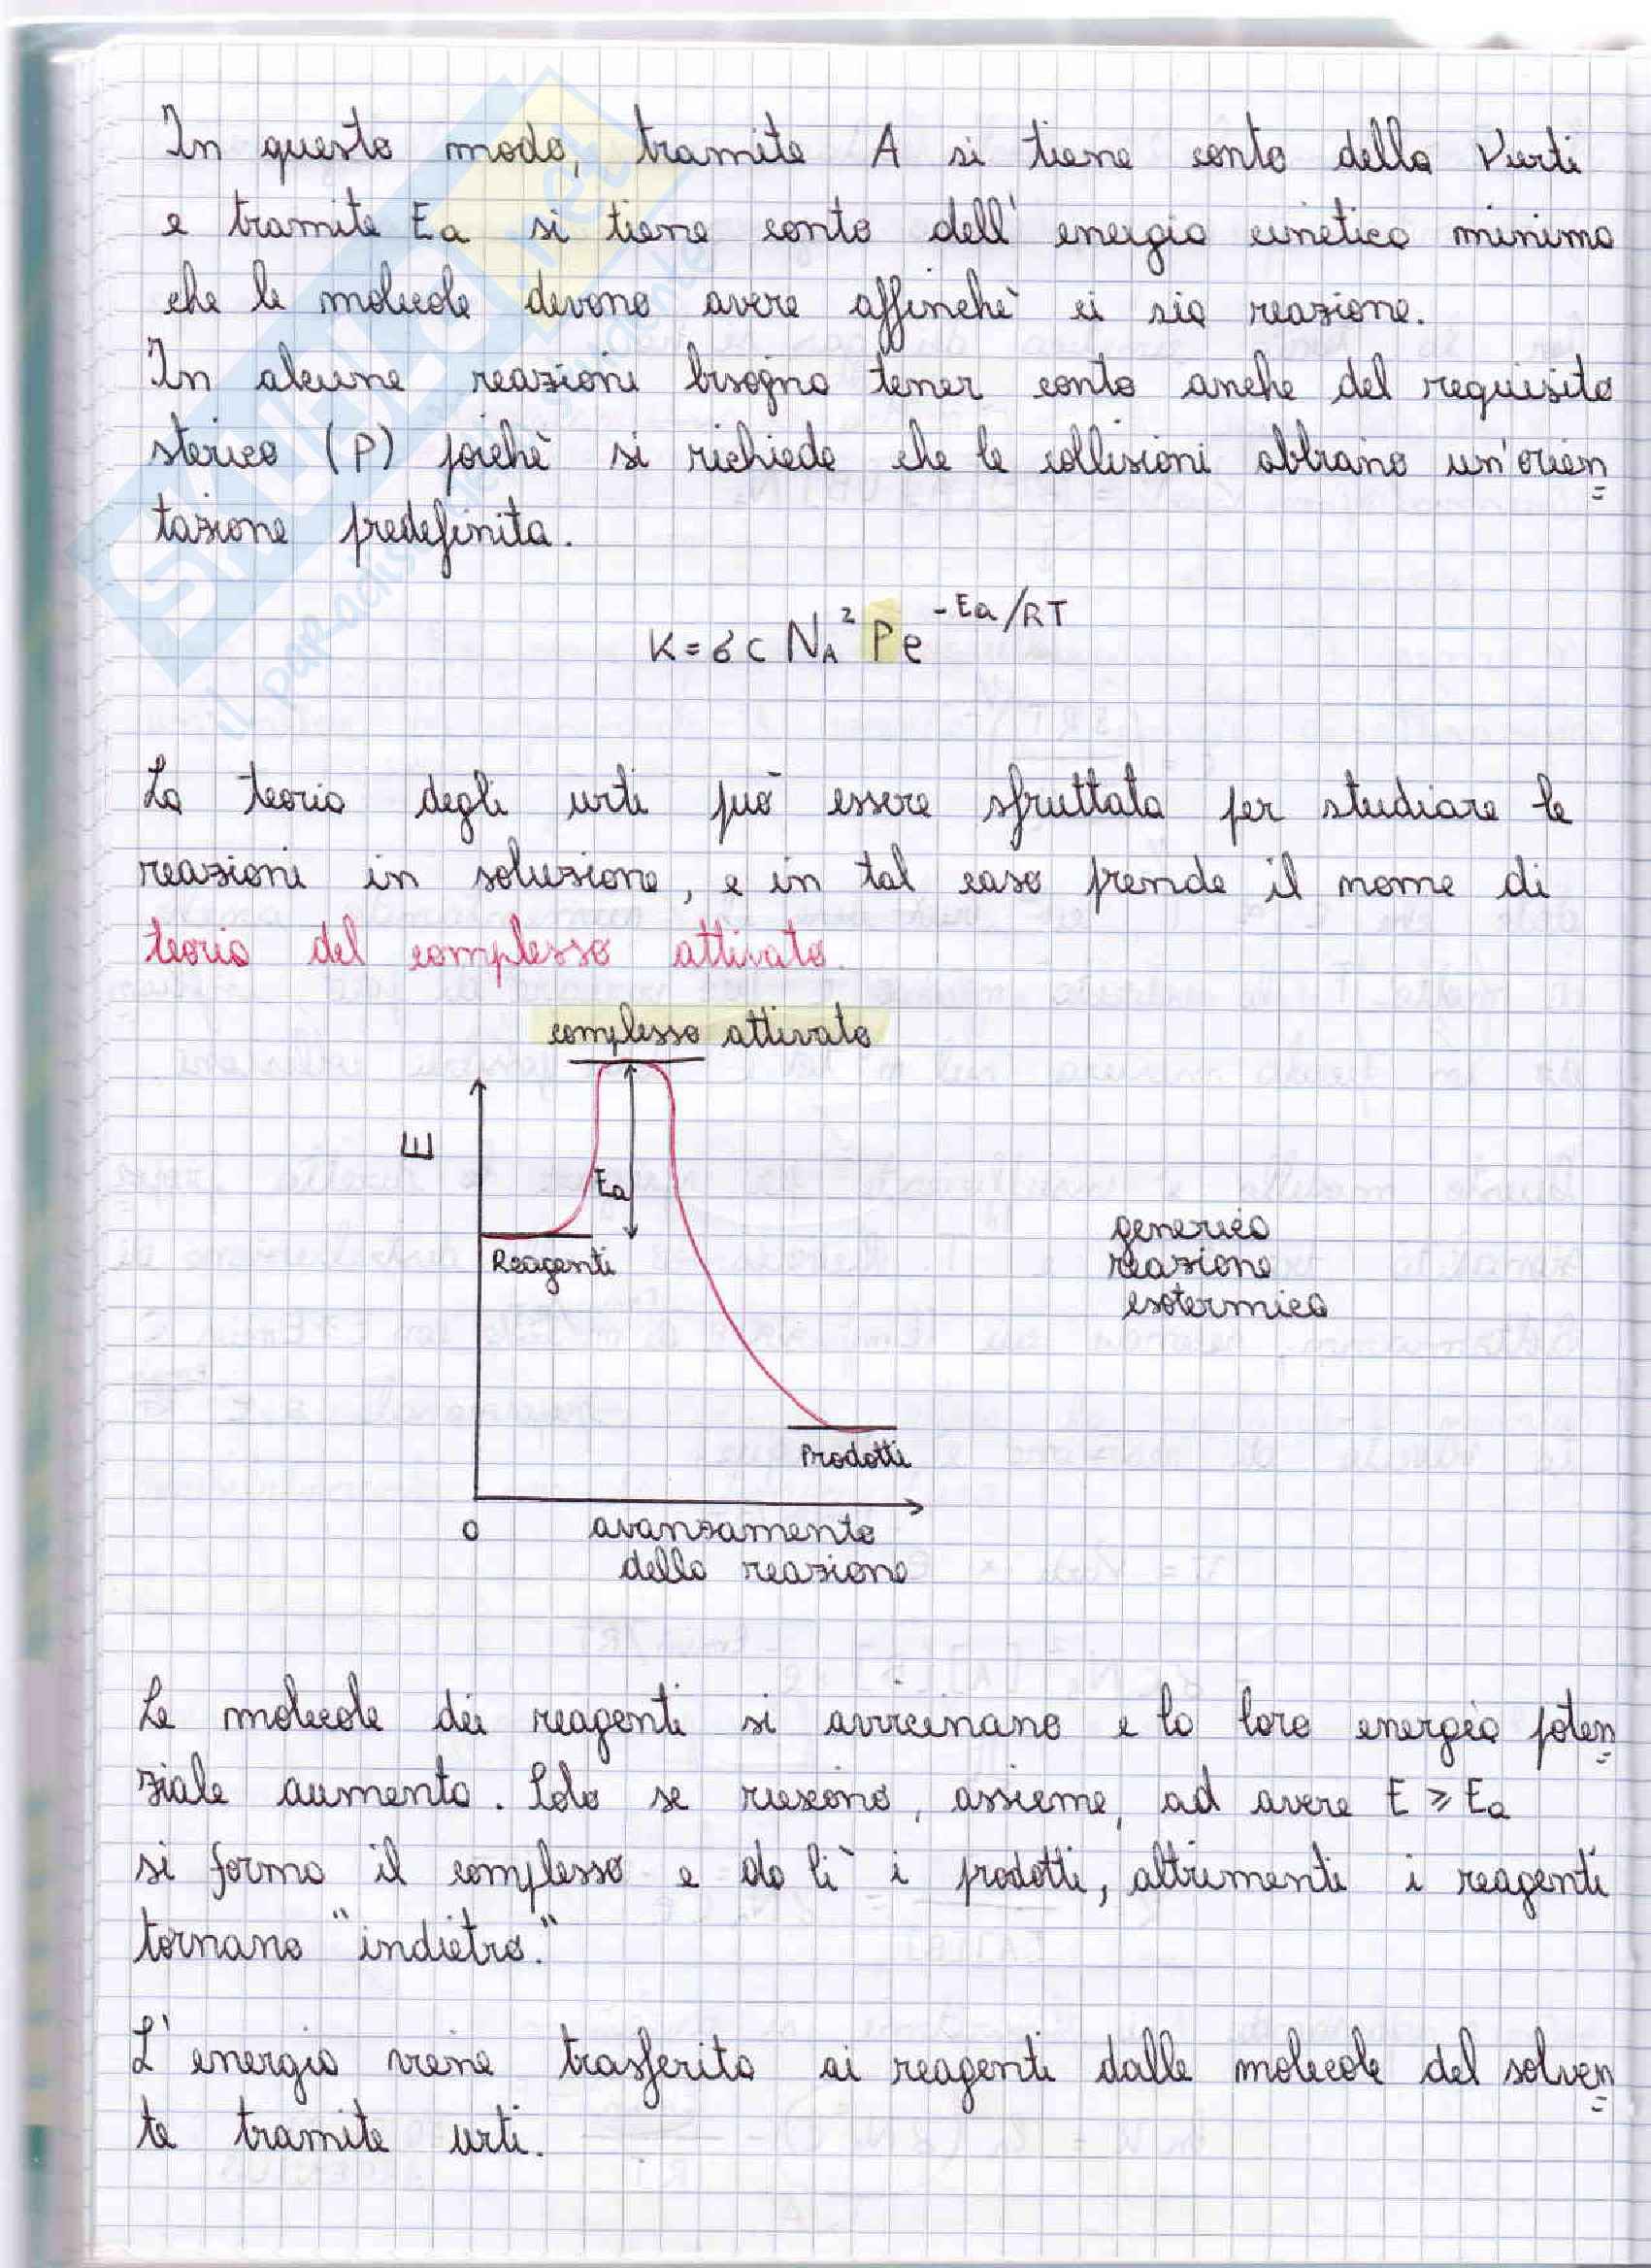 In questo modo, tramite A si tiene conto della Vurti
e tramite Ea si tiene conto dell'energia cinetica minima
che le molecole devono avere affinchè ci sia reazione.
In alcune reazioni bisogna tener conto anche del requisito
sterico (P) poichè si richiede che le collisioni abbiano un'orien
tazione predefinita.
K = σ c N_A² P e^(-Ea/RT)
La teoria degli urti può essere sfruttata per studiare le
reazioni in soluzione, e in tal caso prende il nome di
teoria del complesso attivato.
complesso attivato
E
Ea
Reagenti
generica
reazione
esotermica
Prodotti
0
avanzamento
della reazione
Le molecole dei reagenti si avvicinano e la loro energia poten
ziale aumenta. Solo se riescono, assieme, ad avere E ≥ Ea
si forma il complesso e da lì i prodotti, altrimenti i reagenti
tornano "indietro."
L'energia viene trasferita ai reagenti dalle molecole del solven
te tramite urti.
SKUOLA.net
il paradiso dello studente